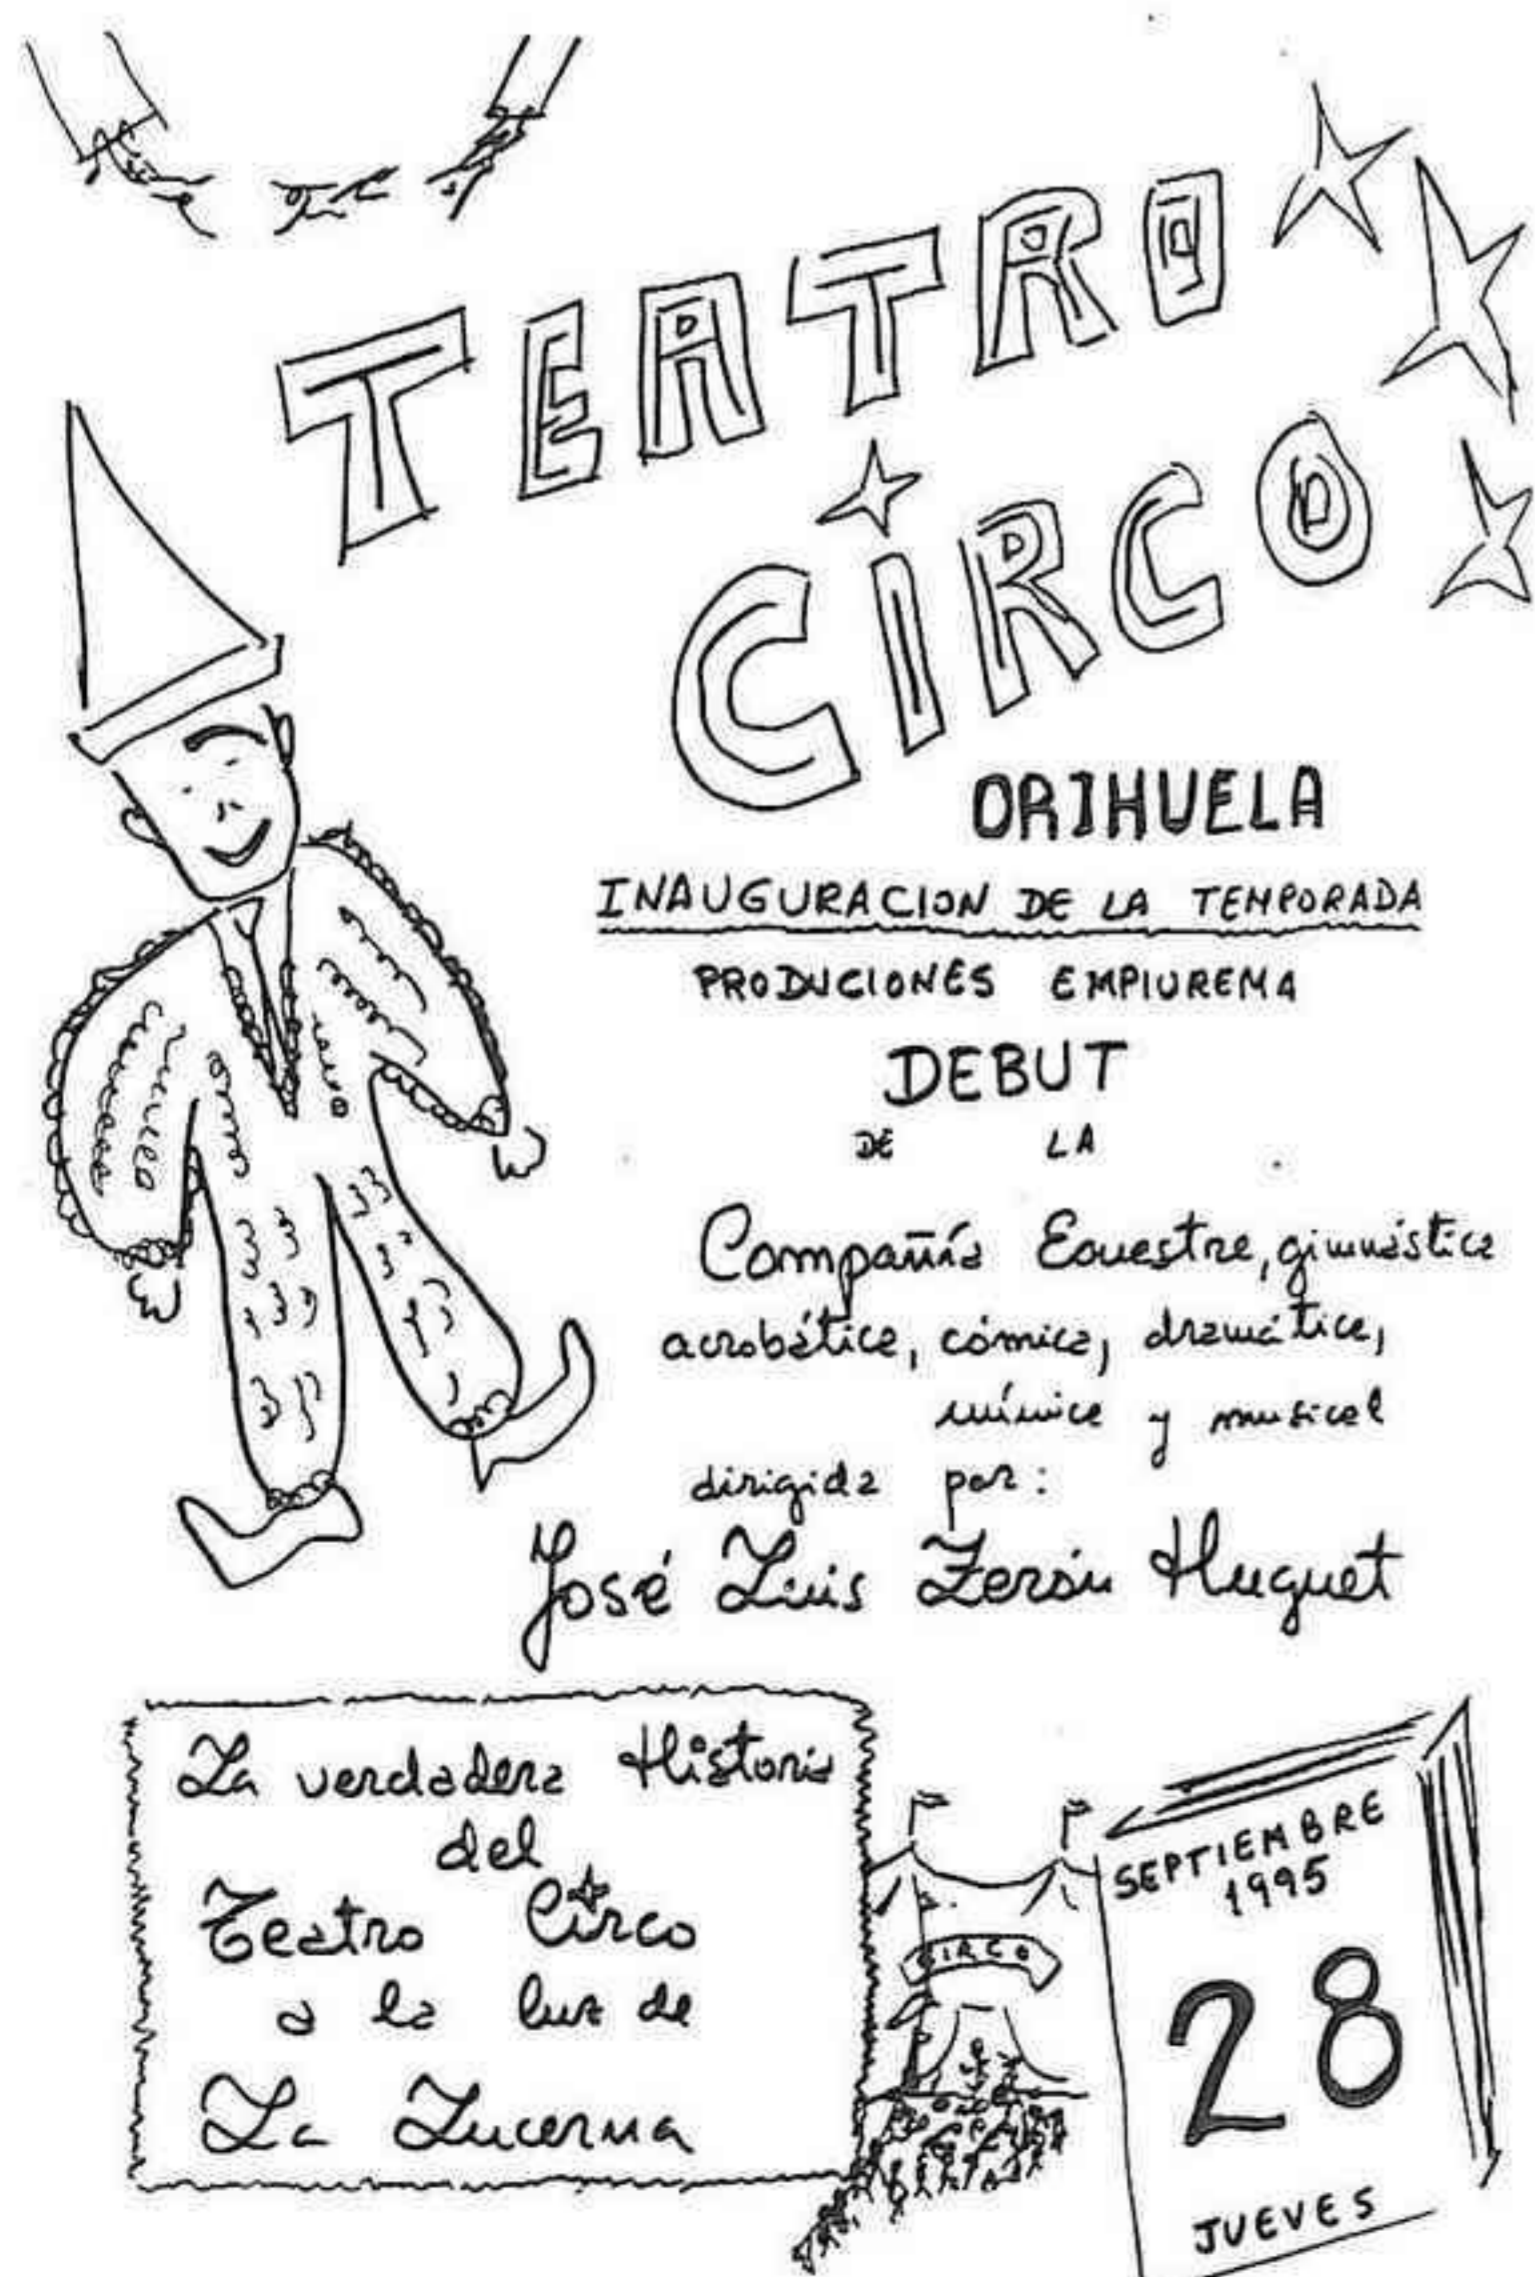 TEATRO
CIRCO
ORIHUELA
INAUGURACION DE LA TEMPORADA
PRODUCIONES EMPIUREMA
DEBUT
DE LA
Compañía Ecuestre, gimnástica
acrobática, cómica, dramática,
mímica y musical
dirigida por:
José Luis Zerón Huguet
La verdadera Historia
del
Teatro Circo
a la luz de
La Lucerna
CIRCO
SEPTIEMBRE
1995
28
JUEVES